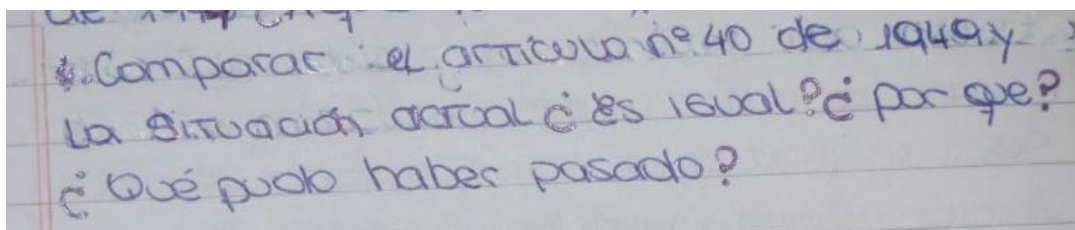 Comparar el artículo nº 40 de 1949 y
la situación actual ¿es igual? ¿por que?
¿Qué pudo haber pasado?